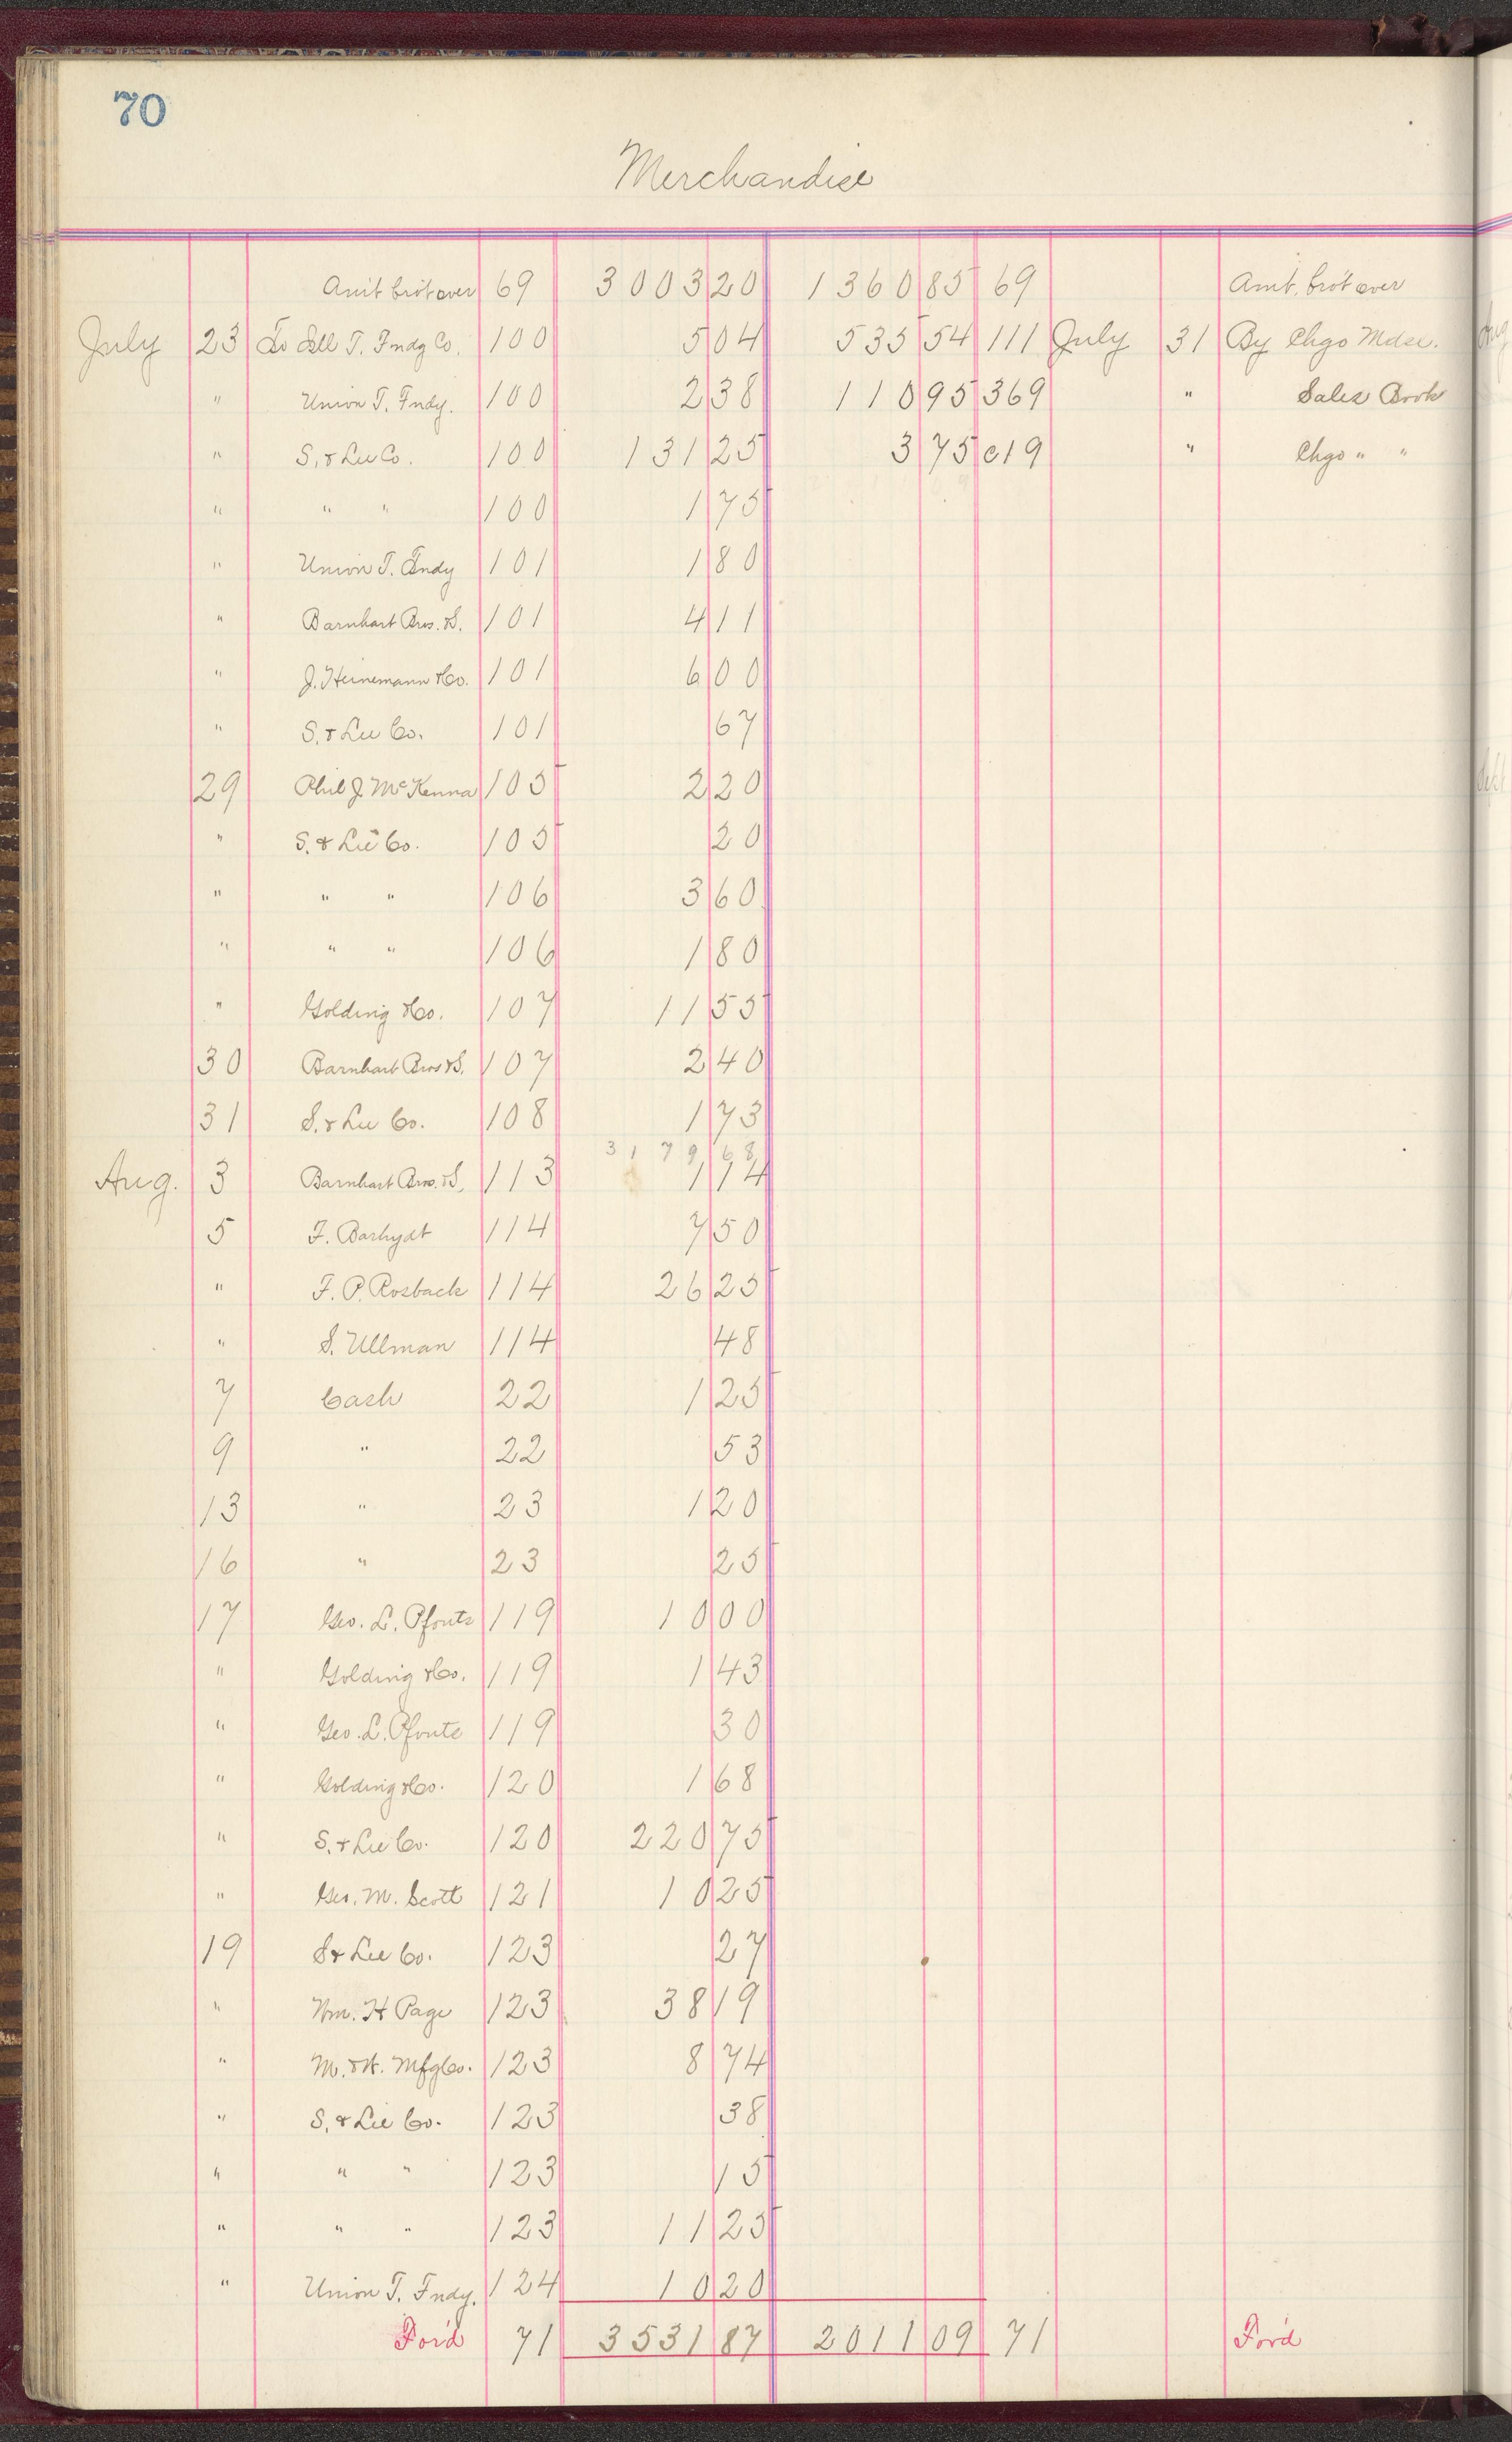 70
Merchandise
Amt brôt over 69 3003 20 1360 85 69 Amt. brôt over
July 23 To Ill T. Fndg Co. 100 5 04 535 54 111 July 31 By Chgo Mdse.
" Union T. Fndy. 100 2 38 110 95 369 " Sales Book
" S. & Lee Co. 100 131 25 3 75 c19 " Chgo " "
" " " 100 1 75
" Union T. Fndy 101 1 80
" Barnhart Bros. & S. 101 4 11
" J. Heinemann & Co. 101 6 00
" S. & Lee Co. 101 67
29 Phil J. McKenna 105 2 20
" S. & Lee Co. 105 20
" " " 106 3 60
" " " 106 1 80
" Golding & Co. 107 11 55
30 Barnhart Bros & S. 107 2 40
31 S. & Lee Co. 108 1 73
3179 68
Aug. 3 Barnhart Bros. & S. 113 1 14
5 F. Barhydt 114 7 50
" F. P. Rosback 114 26 25
" S. Ullman 114 48
7 Cash 22 1 25
9 " 22 53
13 " 23 1 20
16 " 23 25
17 Geo. L. Pfouts 119 10 00
" Golding & Co. 119 1 43
" Geo. L. Pfouts 119 30
" Golding & Co. 120 1 68
" S. & Lee Co. 120 220 75
" Geo. M. Scott 121 10 25
19 S & Lee Co. 123 27
" Wm. H Page 123 38 19
" M. & W. Mfg Co. 123 8 74
" S. & Lee Co. 123 38
" " " 123 15
" " " 123 11 25
" Union T. Fndy. 124 10 20
For'd 71 3531 87 2011 09 71 For'd